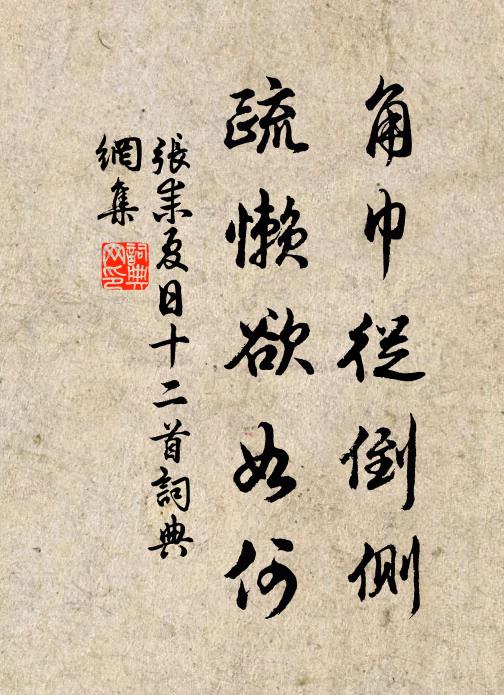 角巾從倒側
疏懶欲如何
張耒夏日十二首詞典
網集
詞典
网印